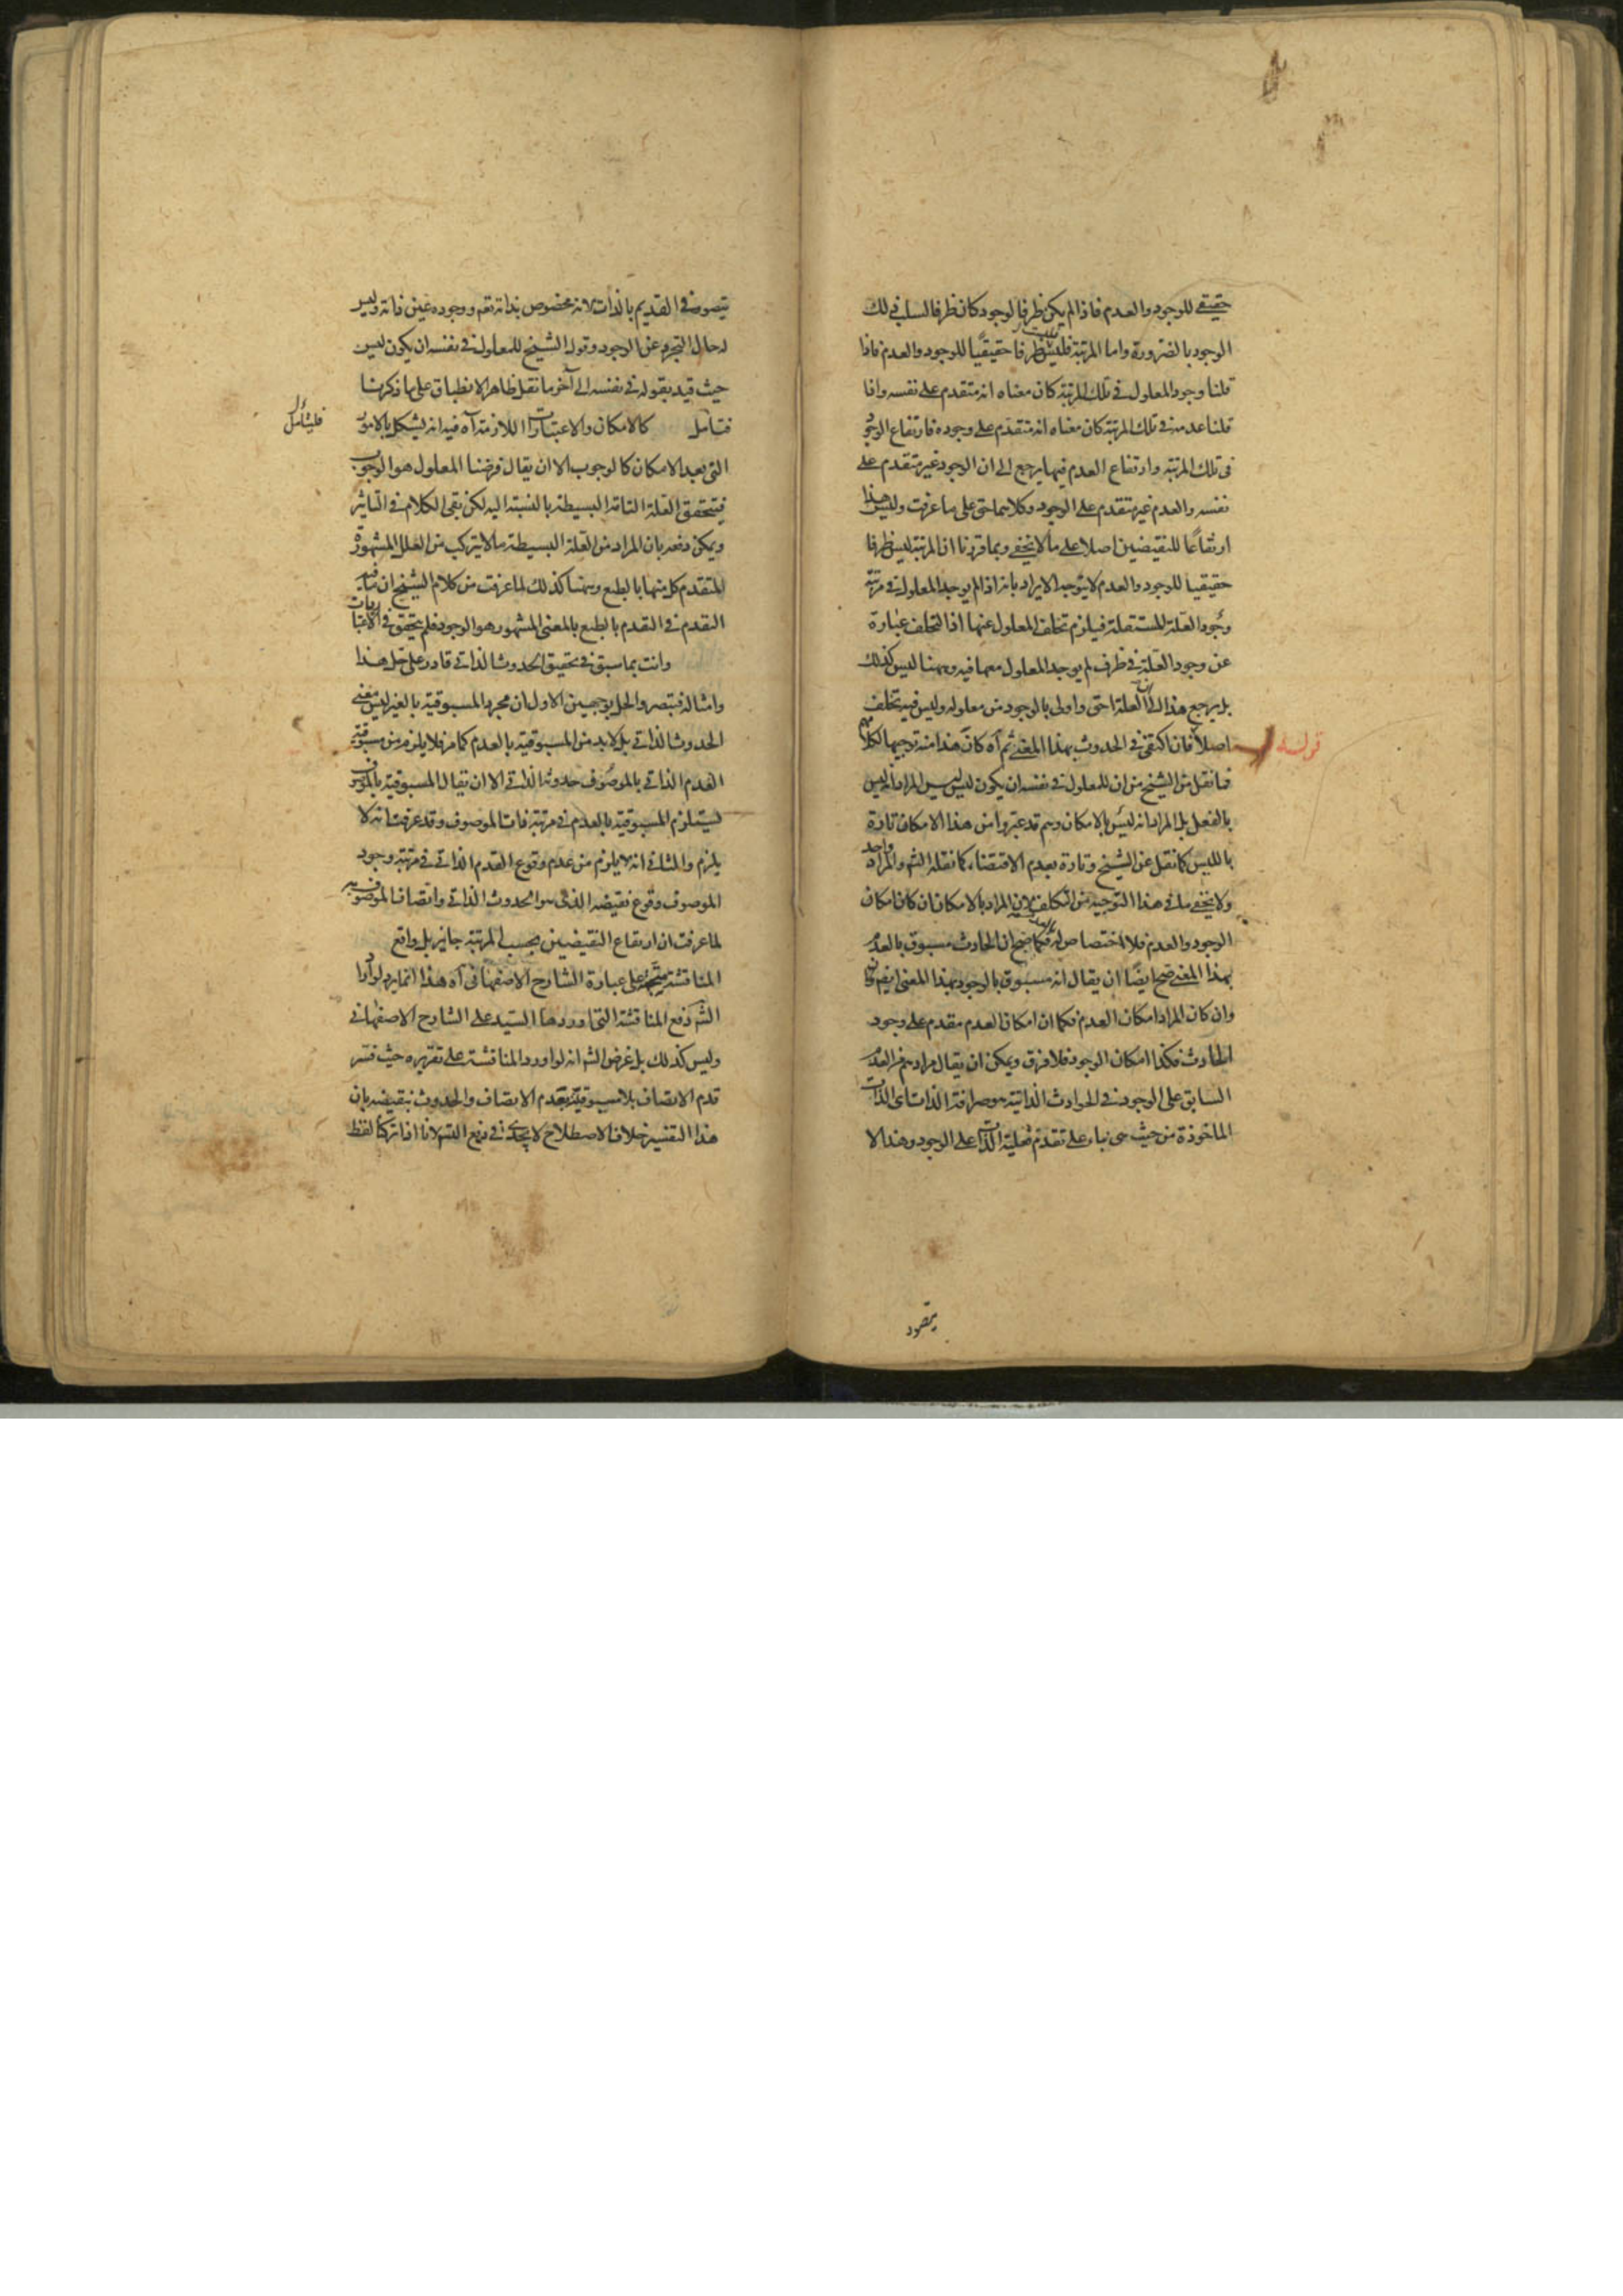 حقيقي للوجود والعدم فاذا لم يكن ظرفا لوجود كان ظرفا لسلب ذلك
الوجود بالضرورة واما المرتبة فليست ظرفا حقيقيًا للوجود والعدم فاذا
قلنا وجود المعلول في تلك المرتبة كان معناه انه متقدم على نفسه واذا
قلنا عدمه في تلك المرتبة كان معناه انه متقدم على وجوده فارتفاع الوجود
في تلك المرتبة وارتفاع العدم فيها يرجع الى ان الوجود غير متقدم على
نفسه والعدم غير متقدم على الوجود وكلاهما حق على ما عرفت وليس هذا
ارتفاعًا للنقيضين اصلا على ما لا يخفى وبما قررنا ان المرتبة ليس ظرفا
حقيقيا للوجود والعدم لا يتوجه الايراد بانه اذا لم يوجد المعلول في مرتبة
وجود العلة المستقلة فيلزم تخلف المعلول عنها اذ التخلف عبارة
عن وجود العلة في ظرف لم يوجد المعلول معها فيه وههنا ليس كذلك
بل يرجع هذا الى ان العلة احق واولى بالوجود من معلوله وليس فيه تخلف
اصلا فان اكتفى في الحدوث بهذا المعنى ثم آه كان هذا منه توجيها لكلامهم
قوله
فما نقل من الشيخ من ان للمعلول في نفسه ان يكون ليس ليس المراد انه ليس
بالفعل بل المراد انه ليس بالامكان وهم قد عبروا من هذا الامكان تارة
بالليس كما نقل عن الشيخ وتارة بعدم الاقتضاء كما نقله الشم والمراد واحد
ولا يخفى ما في هذا التوجيه من التكلف لان المراد بالامكان ان كان امكان
الوجود والعدم فلا اختصاص له بالعدم فكما صح ان الحادث مسبوق بالعدم
بهذا المعنى صح ايضًا ان يقال انه مسبوق بالوجود بهذا المعنى ايضم
وان كان المراد امكان العدم فكما ان امكان العدم مقدم على وجود
الحادث فكذا امكان الوجود فلا فرق ويمكن ان يقال مرادهم من العدم
السابق على الوجود في الحوادث الذاتية هو صرافة الذات اي الذات
الماخوذة من حيث هي بناء على تقدم فعلية الذات على الوجود وهذا لا
يتصور
يتصور في القديم بالذات لانه مخصوص بذاته تعم ووجوده عين ذاته وليس
له حال التجرد عن الوجود وقول الشيخ للمعلول في نفسه ان يكون ليس
حيث قيد بقوله في نفسه الى آخر ما نقل ظاهر الانطباق على ما ذكرنا
فتأمل كالامكان والاعتبارات اللازمة آه فيه انه يشكل بالامور
فليتأمل
التي بعد الامكان كالوجوب الا ان يقال فرضنا المعلول هو الوجوب
فيتحقق العلة التامة البسيطة بالنسبة اليه لكن بقي الكلام في التاثير
ويمكن دفعه بان المراد من العلة البسيطة ما لا يتركب من العلل المشهورة
المتقدم كل منها بالطبع وههنا كذلك لما عرفت من كلام الشيخ ان ما فيه
التقدم في التقدم بالطبع بالمعنى المشهور هو الوجود فلم يتحقق في الاعتبارات
وانت بما سبق في تحقيق الحدوث الذاتي قادر على حل هذا
وامثاله فتبصر والحل بوجهين الاول ان مجرد المسبوقية بالغير ليس معنى
الحدوث الذاتي بل لا بد من المسبوقية بالعدم كما مر فلا يلزم من مسبوقية
القدم الذاتي بالموصوف حدوثه الذاتي الا ان يقال المسبوقية بالموصوف
يستلزم المسبوقية بالعدم في مرتبة ذات الموصوف وقد عرفت انه لا
يلزم والثاني انه لا يلزم من عدم وقوع القدم الذاتي في مرتبة وجود
الموصوف وقوع نقيضه الذي هو الحدوث الذاتي واتصاف الموصوف به
لما عرفت ان ارتفاع النقيضين بحسب المرتبة جايز بل واقع
المناقشة متجهة على عبارة الشارح الاصفهاني آه هذا انما يرد لو اراد
الشم دفع المناقشة التي اوردها السيد على الشارح الاصفهاني
وليس كذلك بل غرض الشم انه لو اورد المناقشة على تقريره حيث فسر
قدم الاتصاف بلامسبوقيته بعدم الاتصاف والحدوث بنقيضه بان
هذا التفسير خلاف الاصطلاح لا يجدي في دفع الشم لانا اذا تركنا لفظ